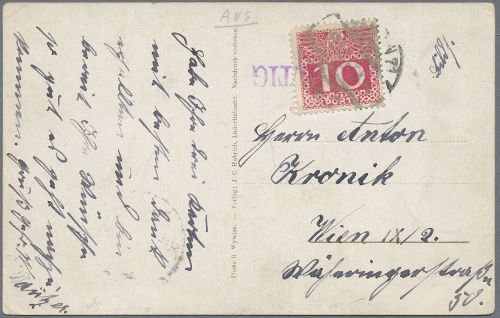 Aus
Habe Ihre drei Karten
mit bestem Dank
erhalten und bin
bereit Ihr Wünsche
so gut es geht nachzu-
kommen.
Photo B. Wywias. — Verlag: J. C. Hubrich, Lüderitzbucht. Nachdruck verboten.
10
PORTO
Herrn Anton
Kronik
Wien IX/2.
Währingerstraße
50.